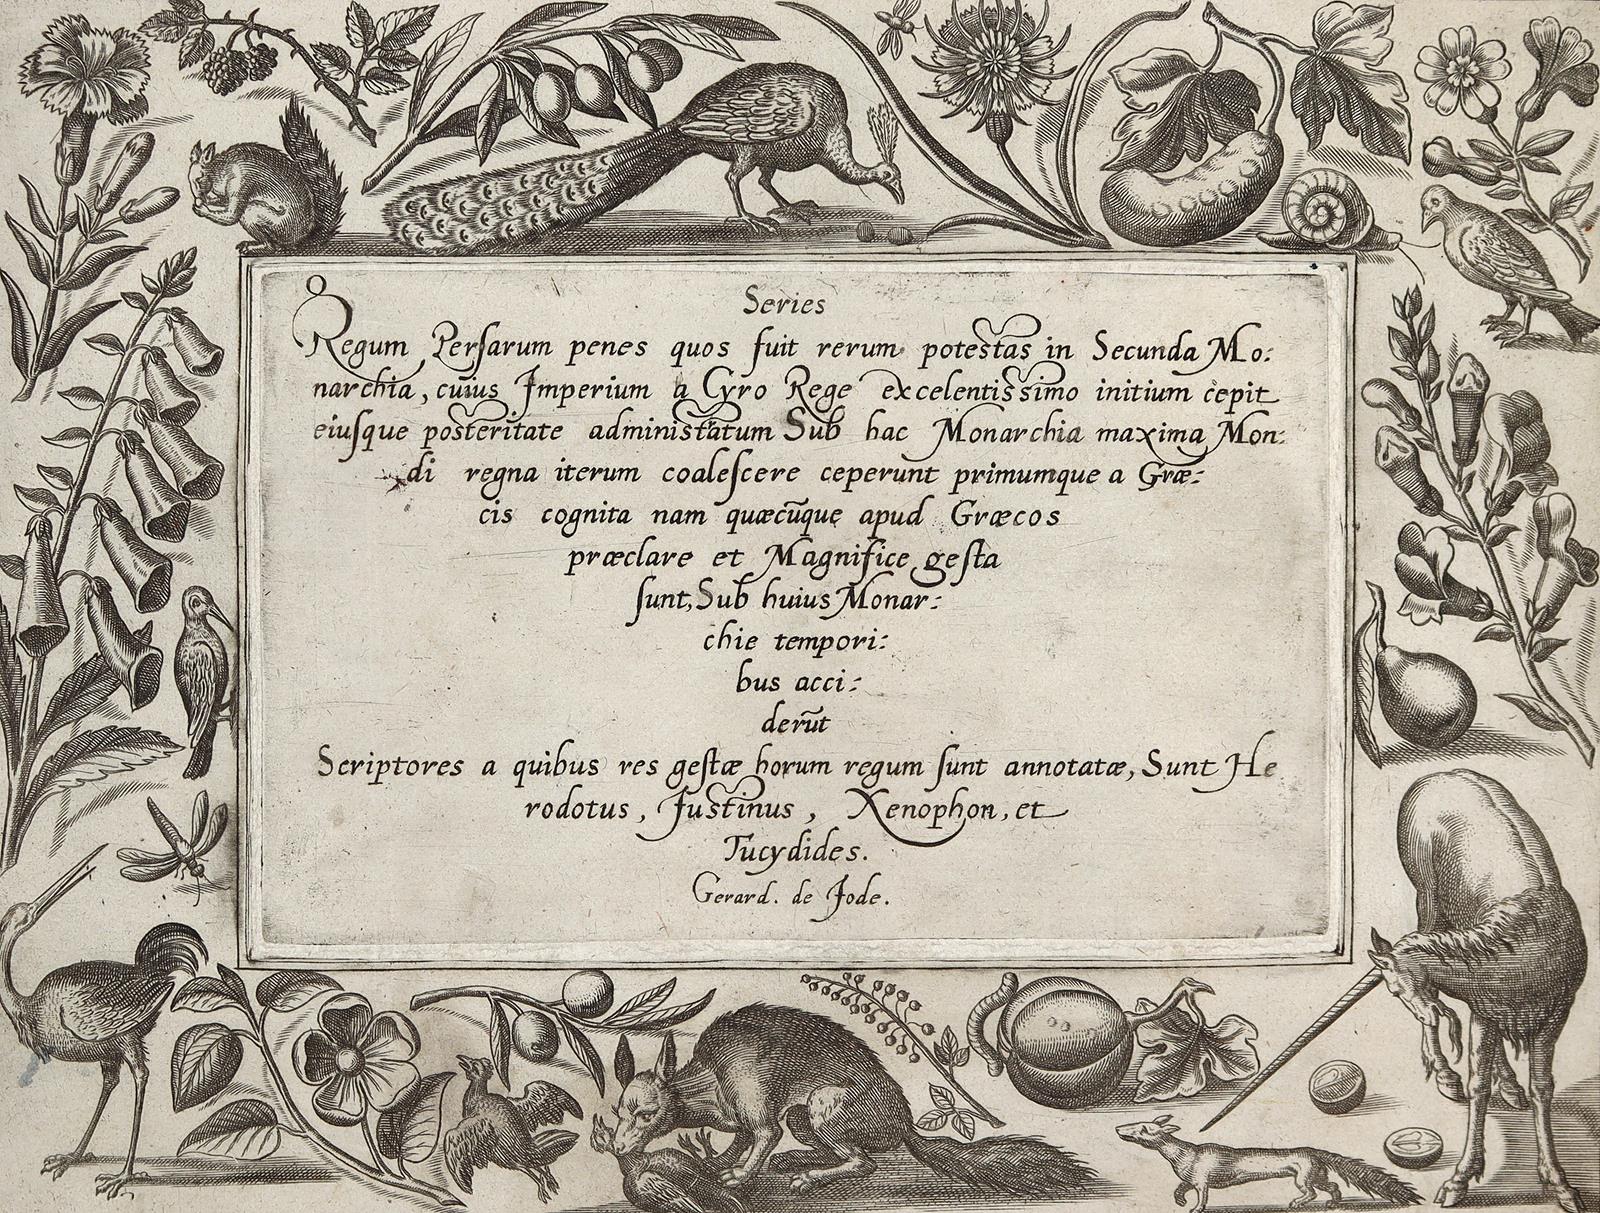 Series
Regum Perſarum penes quos fuit rerum potestas in Secunda Mo:
narchia, cuius Imperium a Cyro Rege excelentissimo initium cepit
eiuſque posteritate administatum Sub hac Monarchia maxima Mun:
di regna iterum coaleſcere ceperunt primumque a Græ:
cis cognita nam quæcūque apud Græcos
præclare et Magnifice geſta
ſunt, Sub huius Monar:
chie tempori:
bus acci:
derūt
Scriptores a quibus res geſtæ horum regum ſunt annotatæ, Sunt He
rodotus, Justinus, Xenophon, et
Tucydides.
Gerard. de Jode.